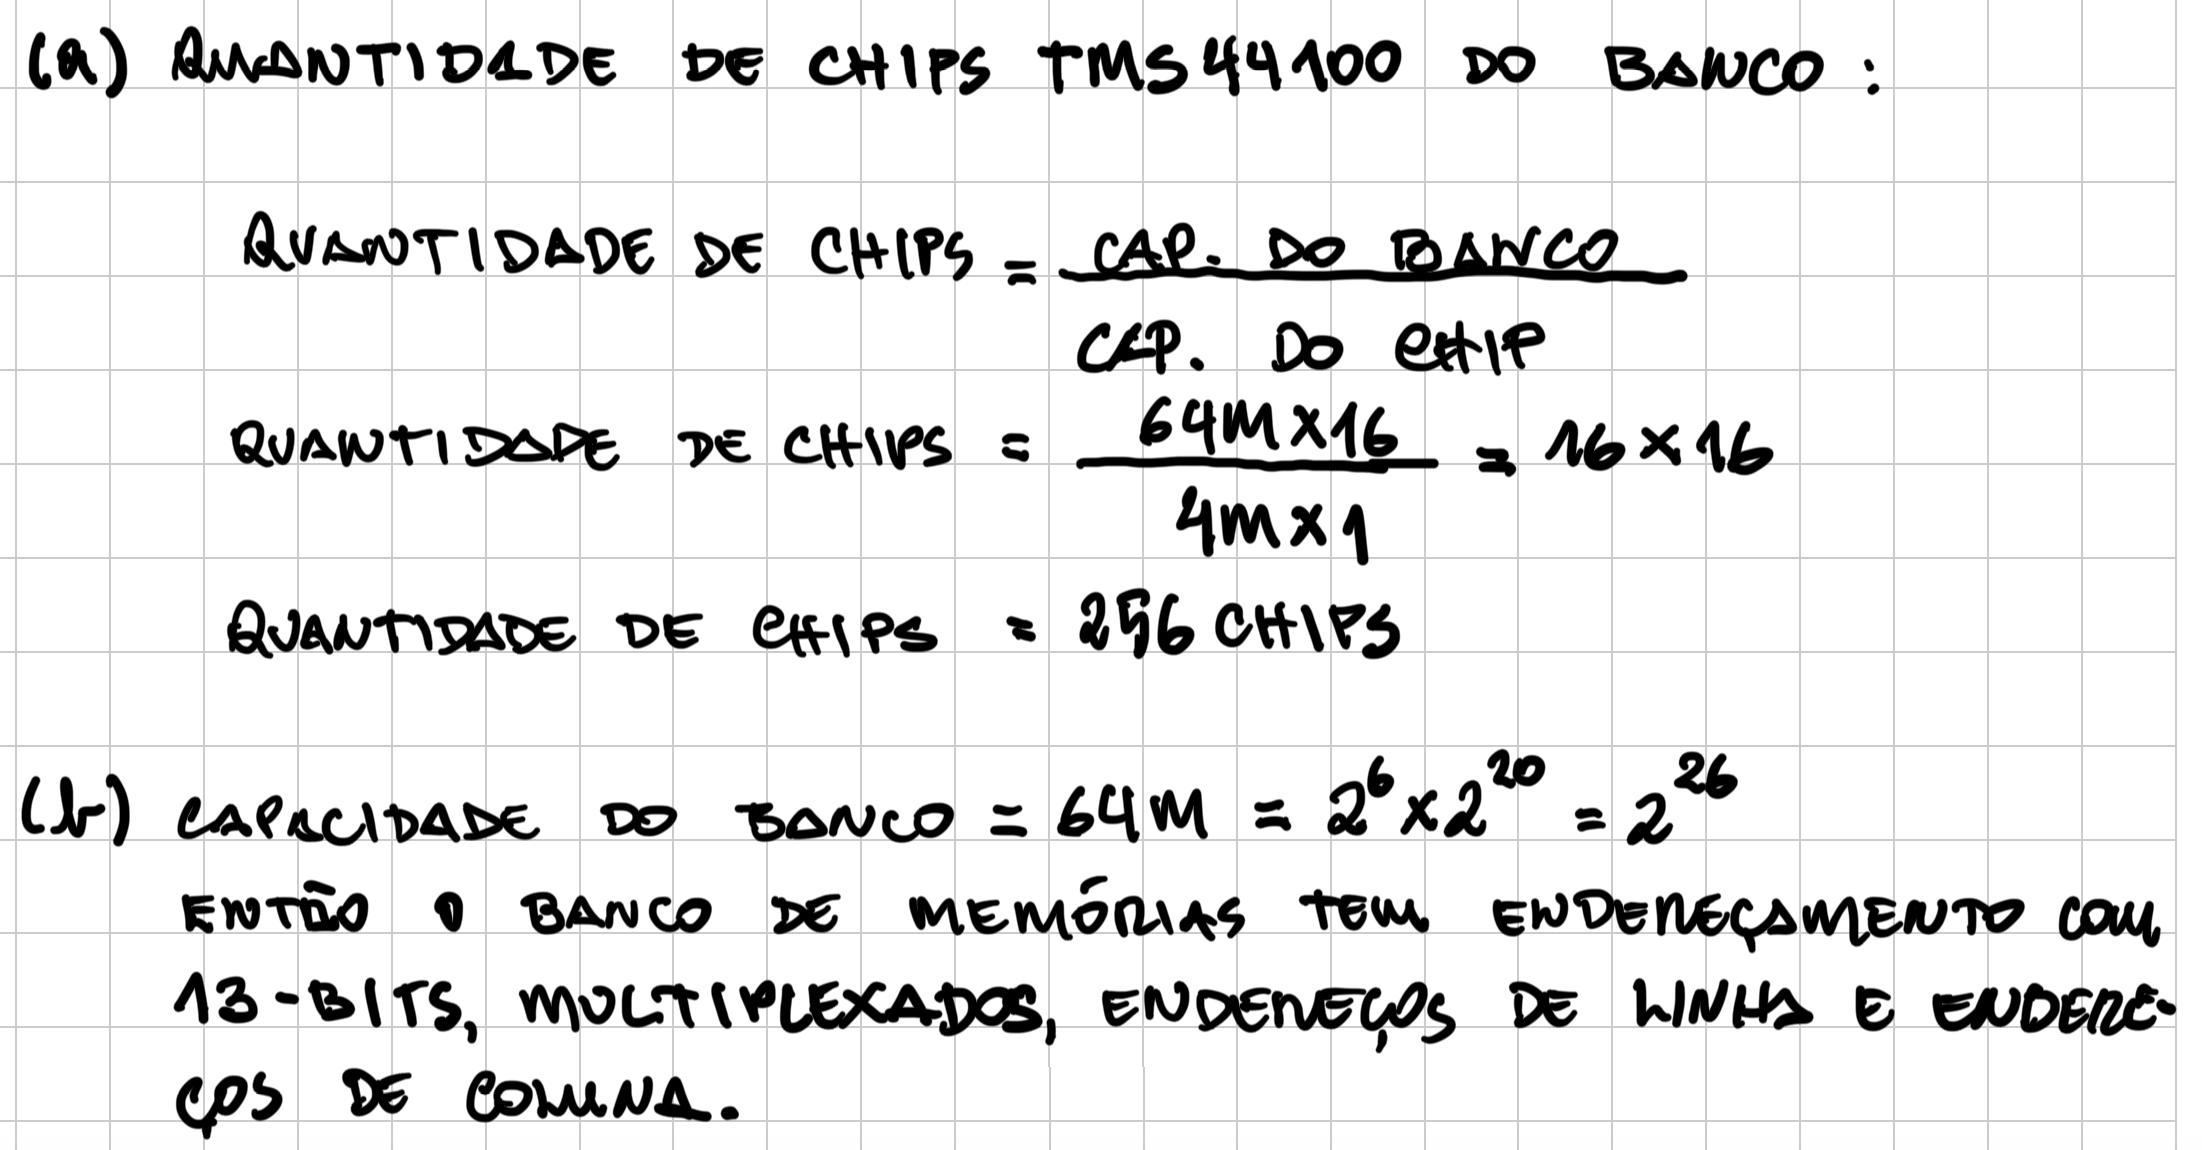 (a) QUANTIDADE DE CHIPS TMS44100 DO BANCO:
QUANTIDADE DE CHIPS = CAP. DO BANCO
CAP. DO CHIP
QUANTIDADE DE CHIPS = 64M×16 = 16×16
4M×1
QUANTIDADE DE CHIPS = 256 CHIPS
(b) CAPACIDADE DO BANCO = 64M = 2⁶×2²⁰ = 2²⁶
ENTÃO O BANCO DE MEMÓRIAS TEM ENDEREÇAMENTO COM
13-BITS, MULTIPLEXADOS, ENDEREÇOS DE LINHA E ENDERE-
ÇOS DE COLUNA.